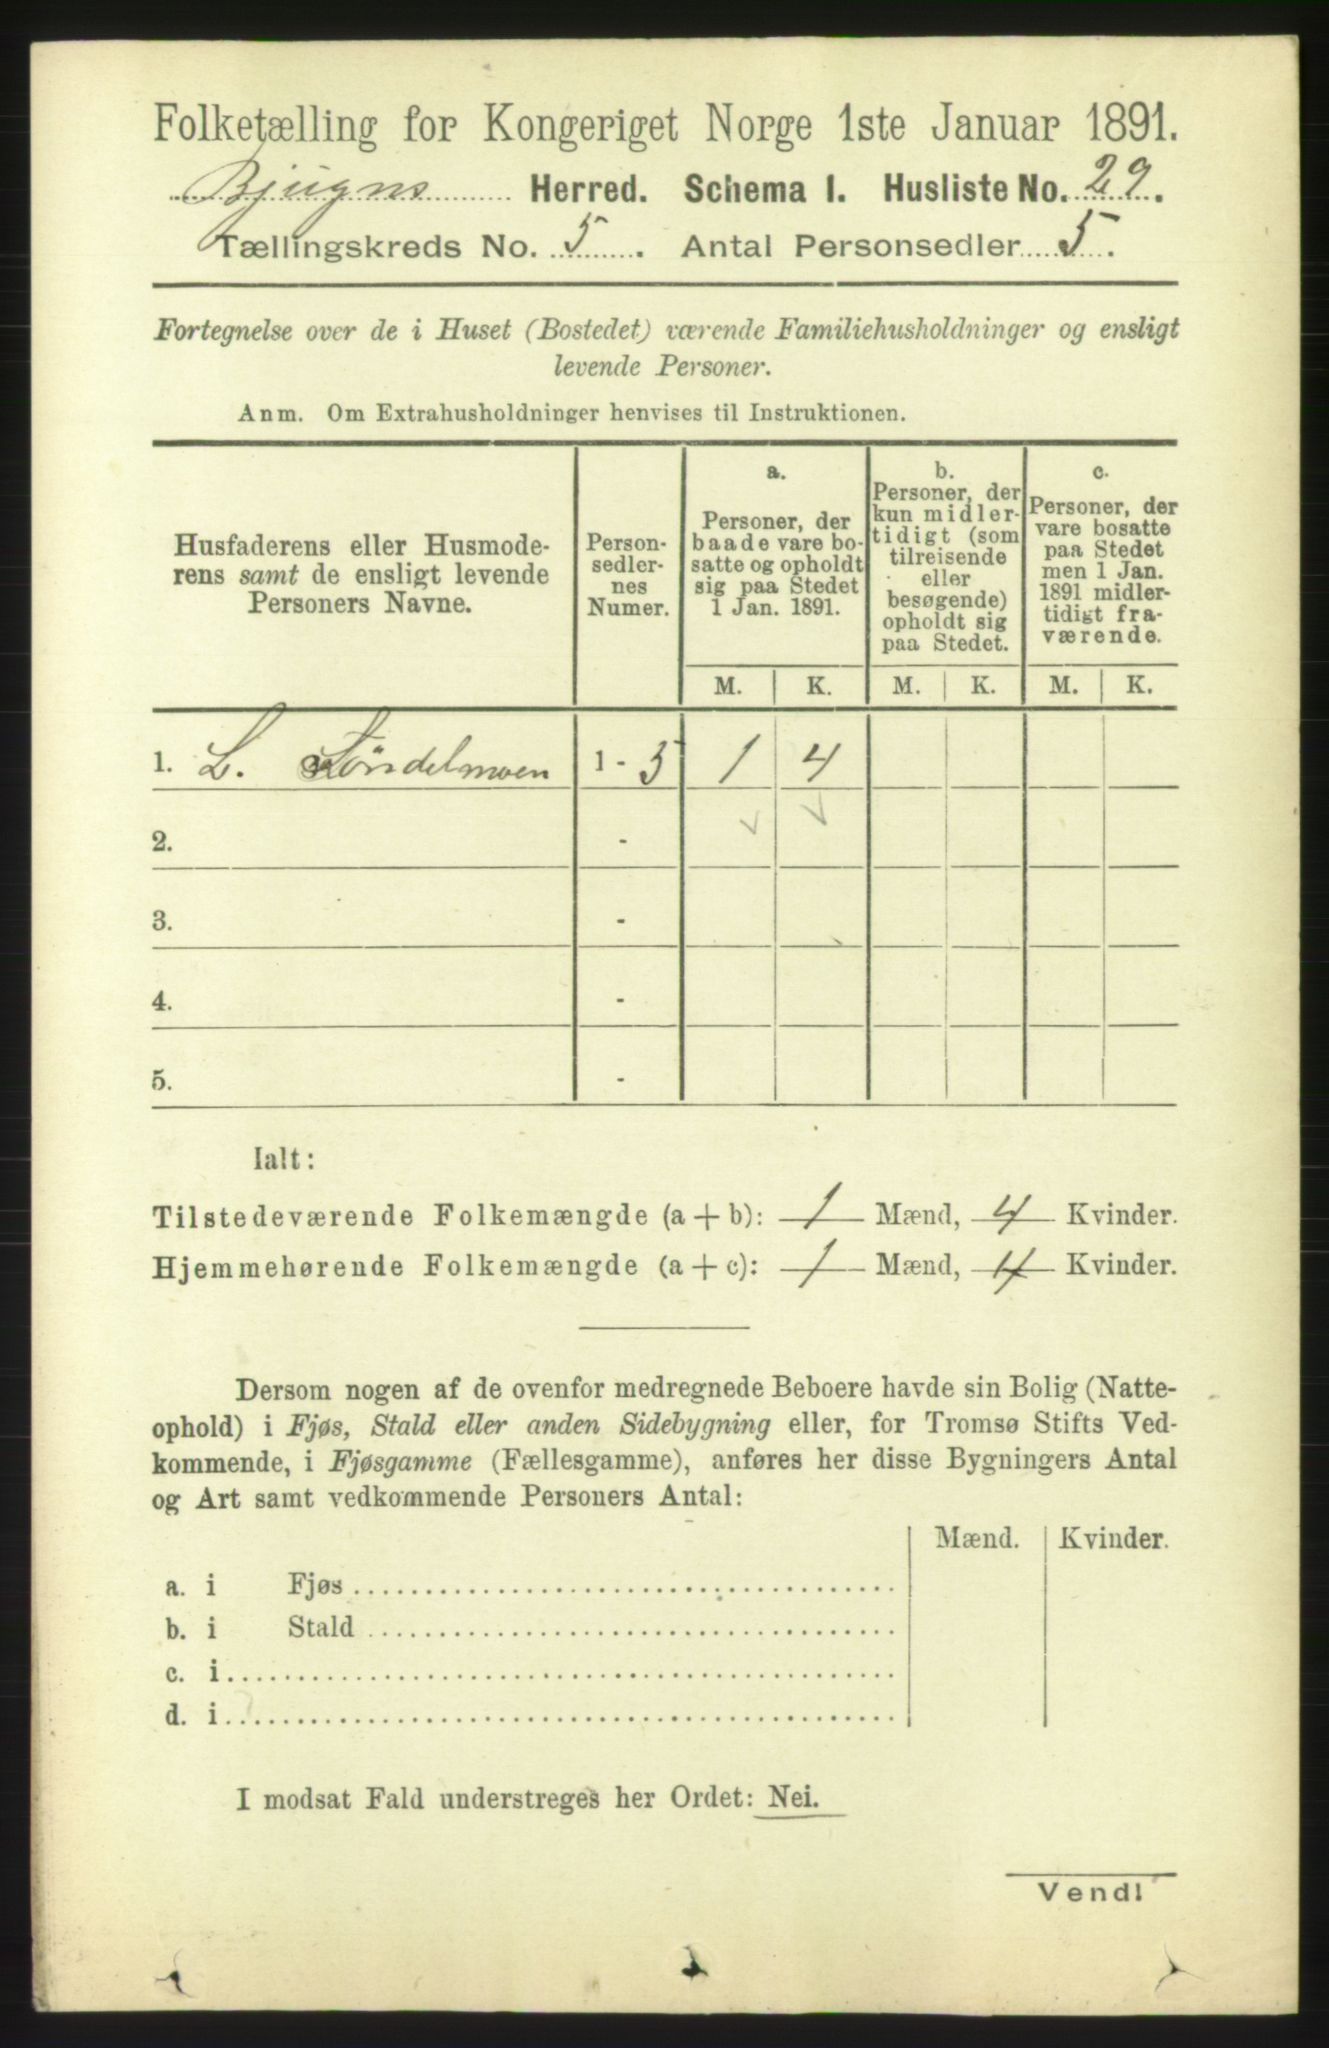 Folketælling for Kongeriget Norge 1ste Januar 1891.
Bjugns Herred. Schema I. Husliste No. 29.
Tællingskreds No. 5. Antal Personsedler 5.
Fortegnelse over de i Huset (Bostedet) værende Familiehusholdninger og ensligt
levende Personer.
Anm. Om Extrahusholdninger henvises til Instruktionen.
Husfaderens eller Husmode-
rens samt de ensligt levende
Personers Navne.
Person-
sedler-
nes
Numer.
a.
Personer, der
baade vare bo-
satte og opholdt
sig paa Stedet
1 Jan. 1891.
b.
Personer, der
kun midler-
tidigt (som
tilreisende
eller
besøgende)
opholdt sig
paa Stedet.
c.
Personer, der
vare bosatte
paa Stedet
men 1 Jan.
1891 midler-
tidigt fra-
værende.
M. K. M. K. M. K.
1. L. 1 - 5 1 4
2. -
3. -
4. -
5. -
Ialt:
Tilstedeværende Folkemængde (a + b): 1 Mænd, 4 Kvinder.
Hjemmehørende Folkemængde (a + c): 1 Mænd, 4 Kvinder.
Dersom nogen af de ovenfor medregnede Beboere havde sin Bolig (Natte-
ophold) i Fjøs, Stald eller anden Sidebygning eller, for Tromsø Stifts Ved-
kommende, i Fjøsgamme (Fællesgamme), anføres her disse Bygningers Antal
og Art samt vedkommende Personers Antal:
Mænd. Kvinder.
a. i Fjøs
b. i Stald
c. i
d. i
I modsat Fald understreges her Ordet: Nei.
Vend!